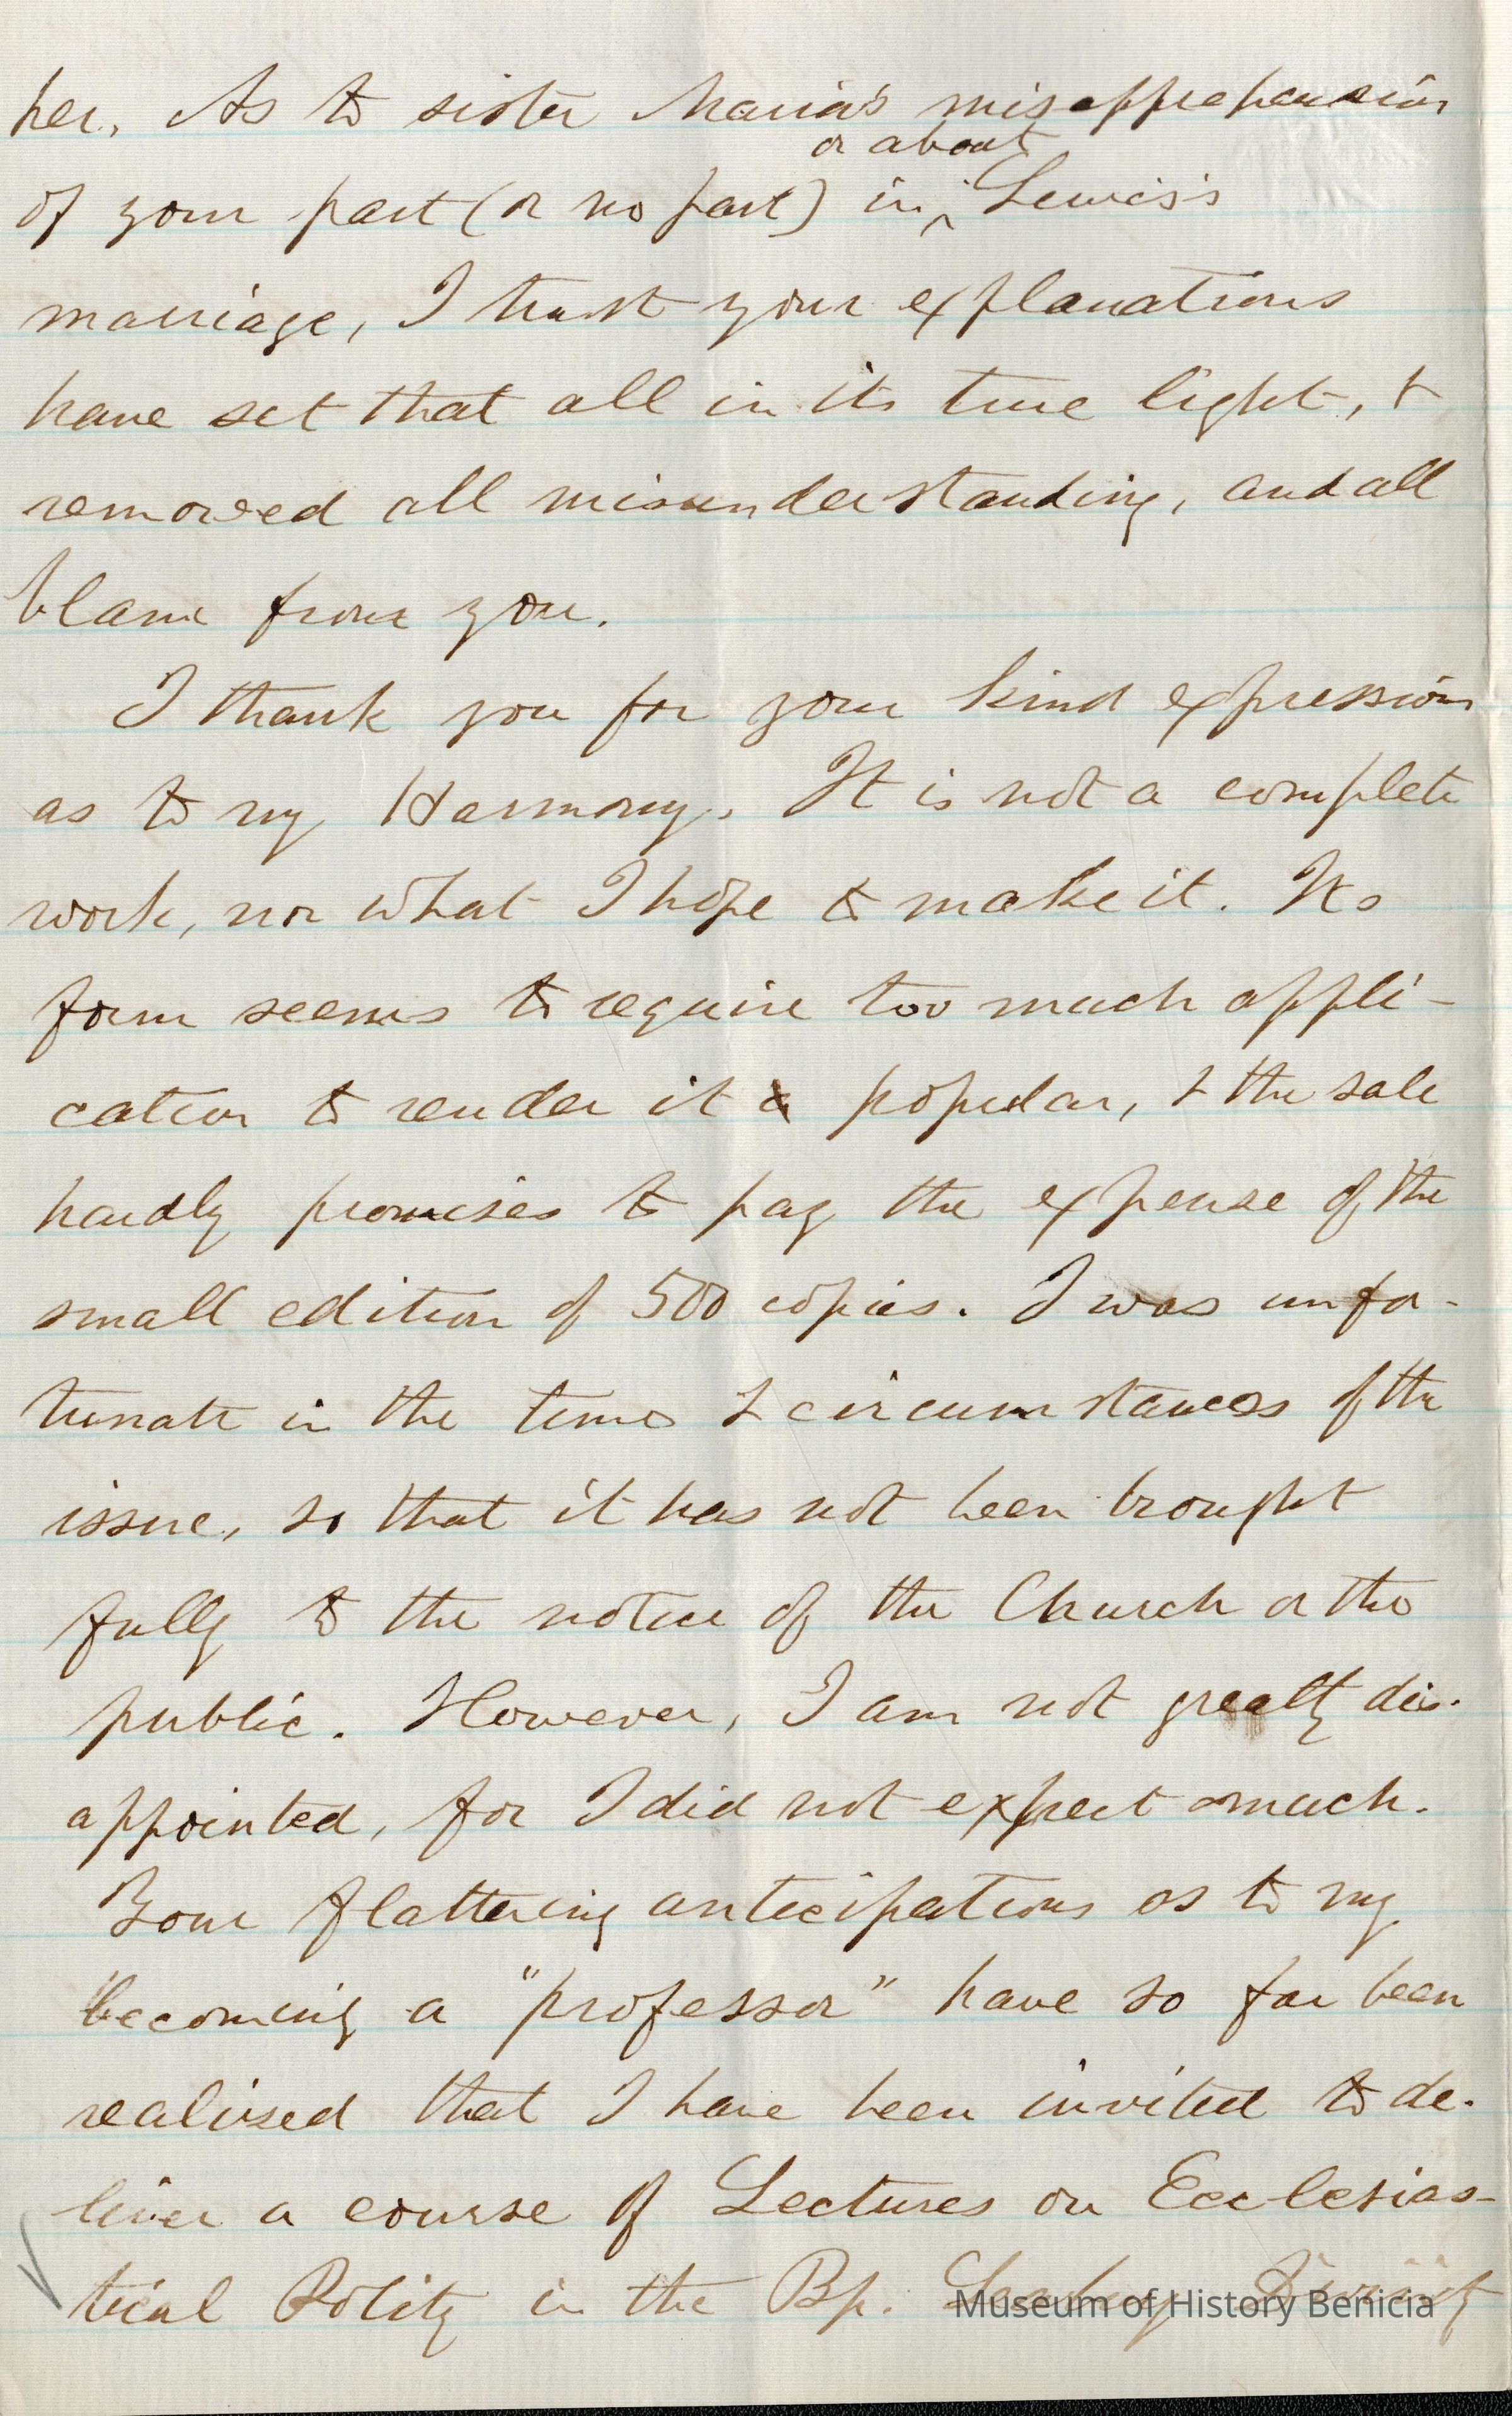 her. As to sister Maria's misapprehension
or about
of your part (or no part) in ^ Lewis's
marriage, I trust your explanations
have set that all in its true light, &
removed all misunderstanding, and all
blame from you.
I thank you for your kind expression
as to my Harmony. It is not a complete
work, nor what I hope to make it. Its
form seems to require too much appli-
cation to render it popular, & the sale
hardly promises to pay the expense of the
small edition of 500 copies. I was unfor-
tunate in the time & circumstances of the
issue, so that it has not been brought
fully to the notice of the Church or the
public. However, I am not greatly dis-
appointed, for I did not expect much.
Your flattering anticipations as to my
becoming a "professor" have so far been
realised that I have been invited to de-
liver a course of Lectures on Ecclesias-
tical Polity in the Bp. Divinity
Museum of History Benicia